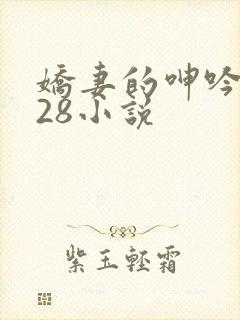 嬌妻的呻吟
28小說
紫玉輕霜